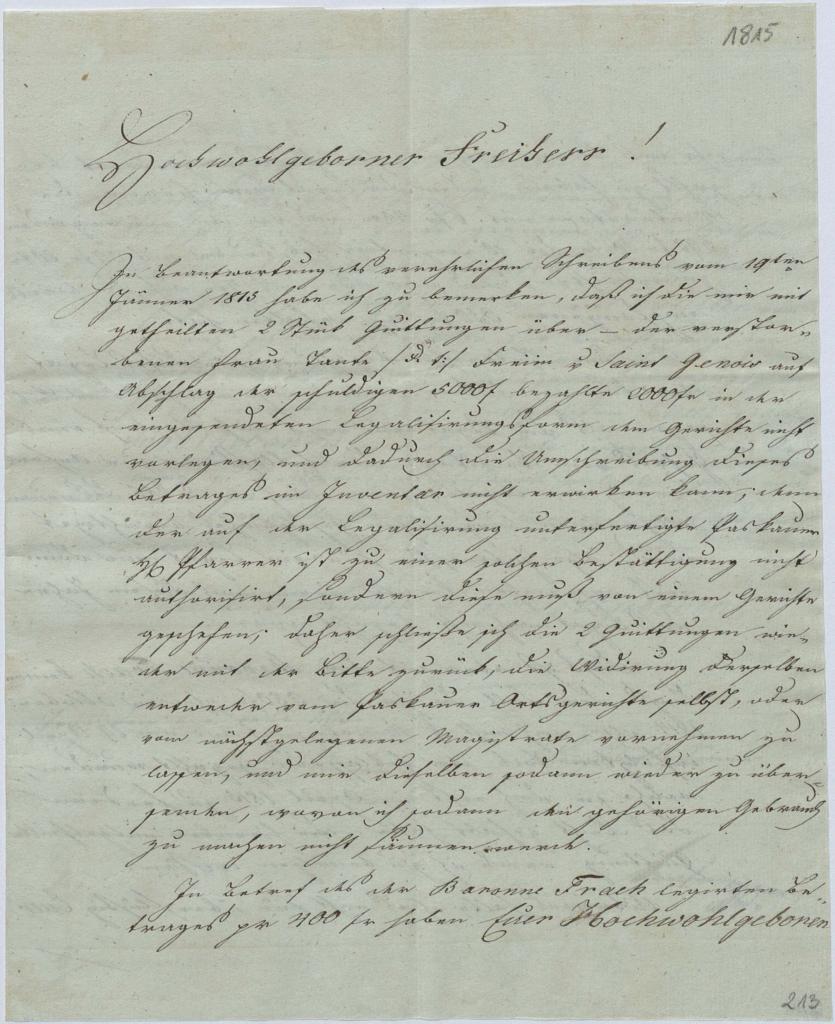 1815
Hochwohlgeborner Freiherr!
In Beantwortung des verehrlichen Schreibens vom 19ten
Jänner 1815 habe ich zu bemerken, daß ich die mir mit
getheilten 2 Stük Quittungen über – der verstor-
benen Frau Tante /: :/ Freiin v Saint Genois auf
Abschlag der schuldigen 5000f bezahlte 2000fr in der
eingesendeten Legalisirungsform dem Gerichte nicht
vorlegen, und dadurch die Umschreibung dieses
Betrages im Inventar nicht erwirken kann; denn
der auf der Legalisirung unterfertigte Paskauer
H Pfarrer ist zu einer solchen Bestättigung nicht
authorisirt, sondern diese muß von einem Gerichte
geschehen; daher schließe ich die 2 Quittungen wie-
der mit der Bitte zurük, die Widirung derselben
entweder vom Paskauer Ortsgerichte selbst, oder
vom nächstgelegenen Magistrate vornehmen zu
lassen, und mir dieselben sodann wieder zu über-
senden, wovon ich sodann den gehörigen Gebrauch
zu machen nicht säumen werde.
In Betref des der Baronne Trach legirten Be-
trages pr 400 fr haben Euer Hochwohlgeboren
213